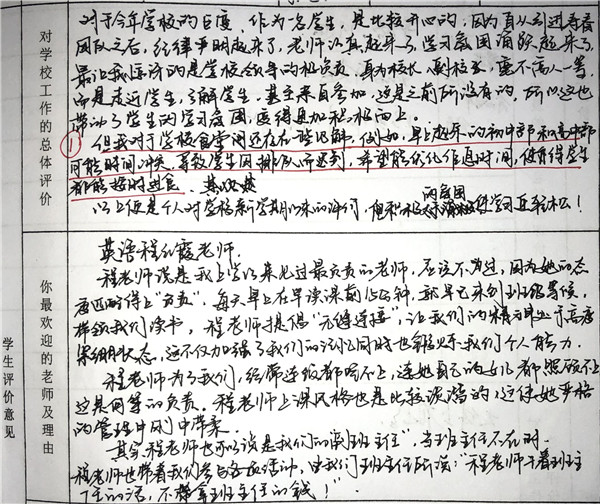 对学校工作的总体评价
对于今年学校的巨变，作为一名学生，是比较开心的，因为自从刘进青看
团队之后，纪律严明起来了，老师认真起来了，学习氛围涌跃起来了，
最让我惊讶的是学校领导的极负责，身为校长、副校长，毫不高人一等，
而是走近学生，了解学生，甚至亲自参加，这是之前所没有的，所以这也
带动了学生的学习氛围，变得更加积极向上。
① 但我对于学校食堂间还存在一些见解，例如，早上起来的初中部和高中部
可能时间冲突，导致学生因排队而迟到，希望能优化作息时间，使得学生
都能按时进食，其次是
以上便是个人对学校新学期以来的评价，使学习更轻松！
学生评价意见
你最欢迎的老师及理由
英语程红霞老师。
程老师说是我上学以来见过最负责的老师，应该不为过，因为她的态
度匹配得上"负责"，每天早上在早读课前15分钟，就早已来到班级等候，
带领我们读书，程老师提倡"无缝连接"，让我们的精力处于高度
集中状态，这不仅加强了我们的记忆同时也锻炼我们个人能力。
程老师为了我们，经常连饭都吃不上，连她自己的女儿都照顾不上
这是何等的负责。程老师上课风格也是比较诙谐的，这使她严格
的管理中同
其实程老师也可以说是我们的"副班主任"，当班主任不在时，
程老师也带着我们参与各项活动，由我们班主任所说："程老师干着班主
任的活，不拿班主任的钱！"